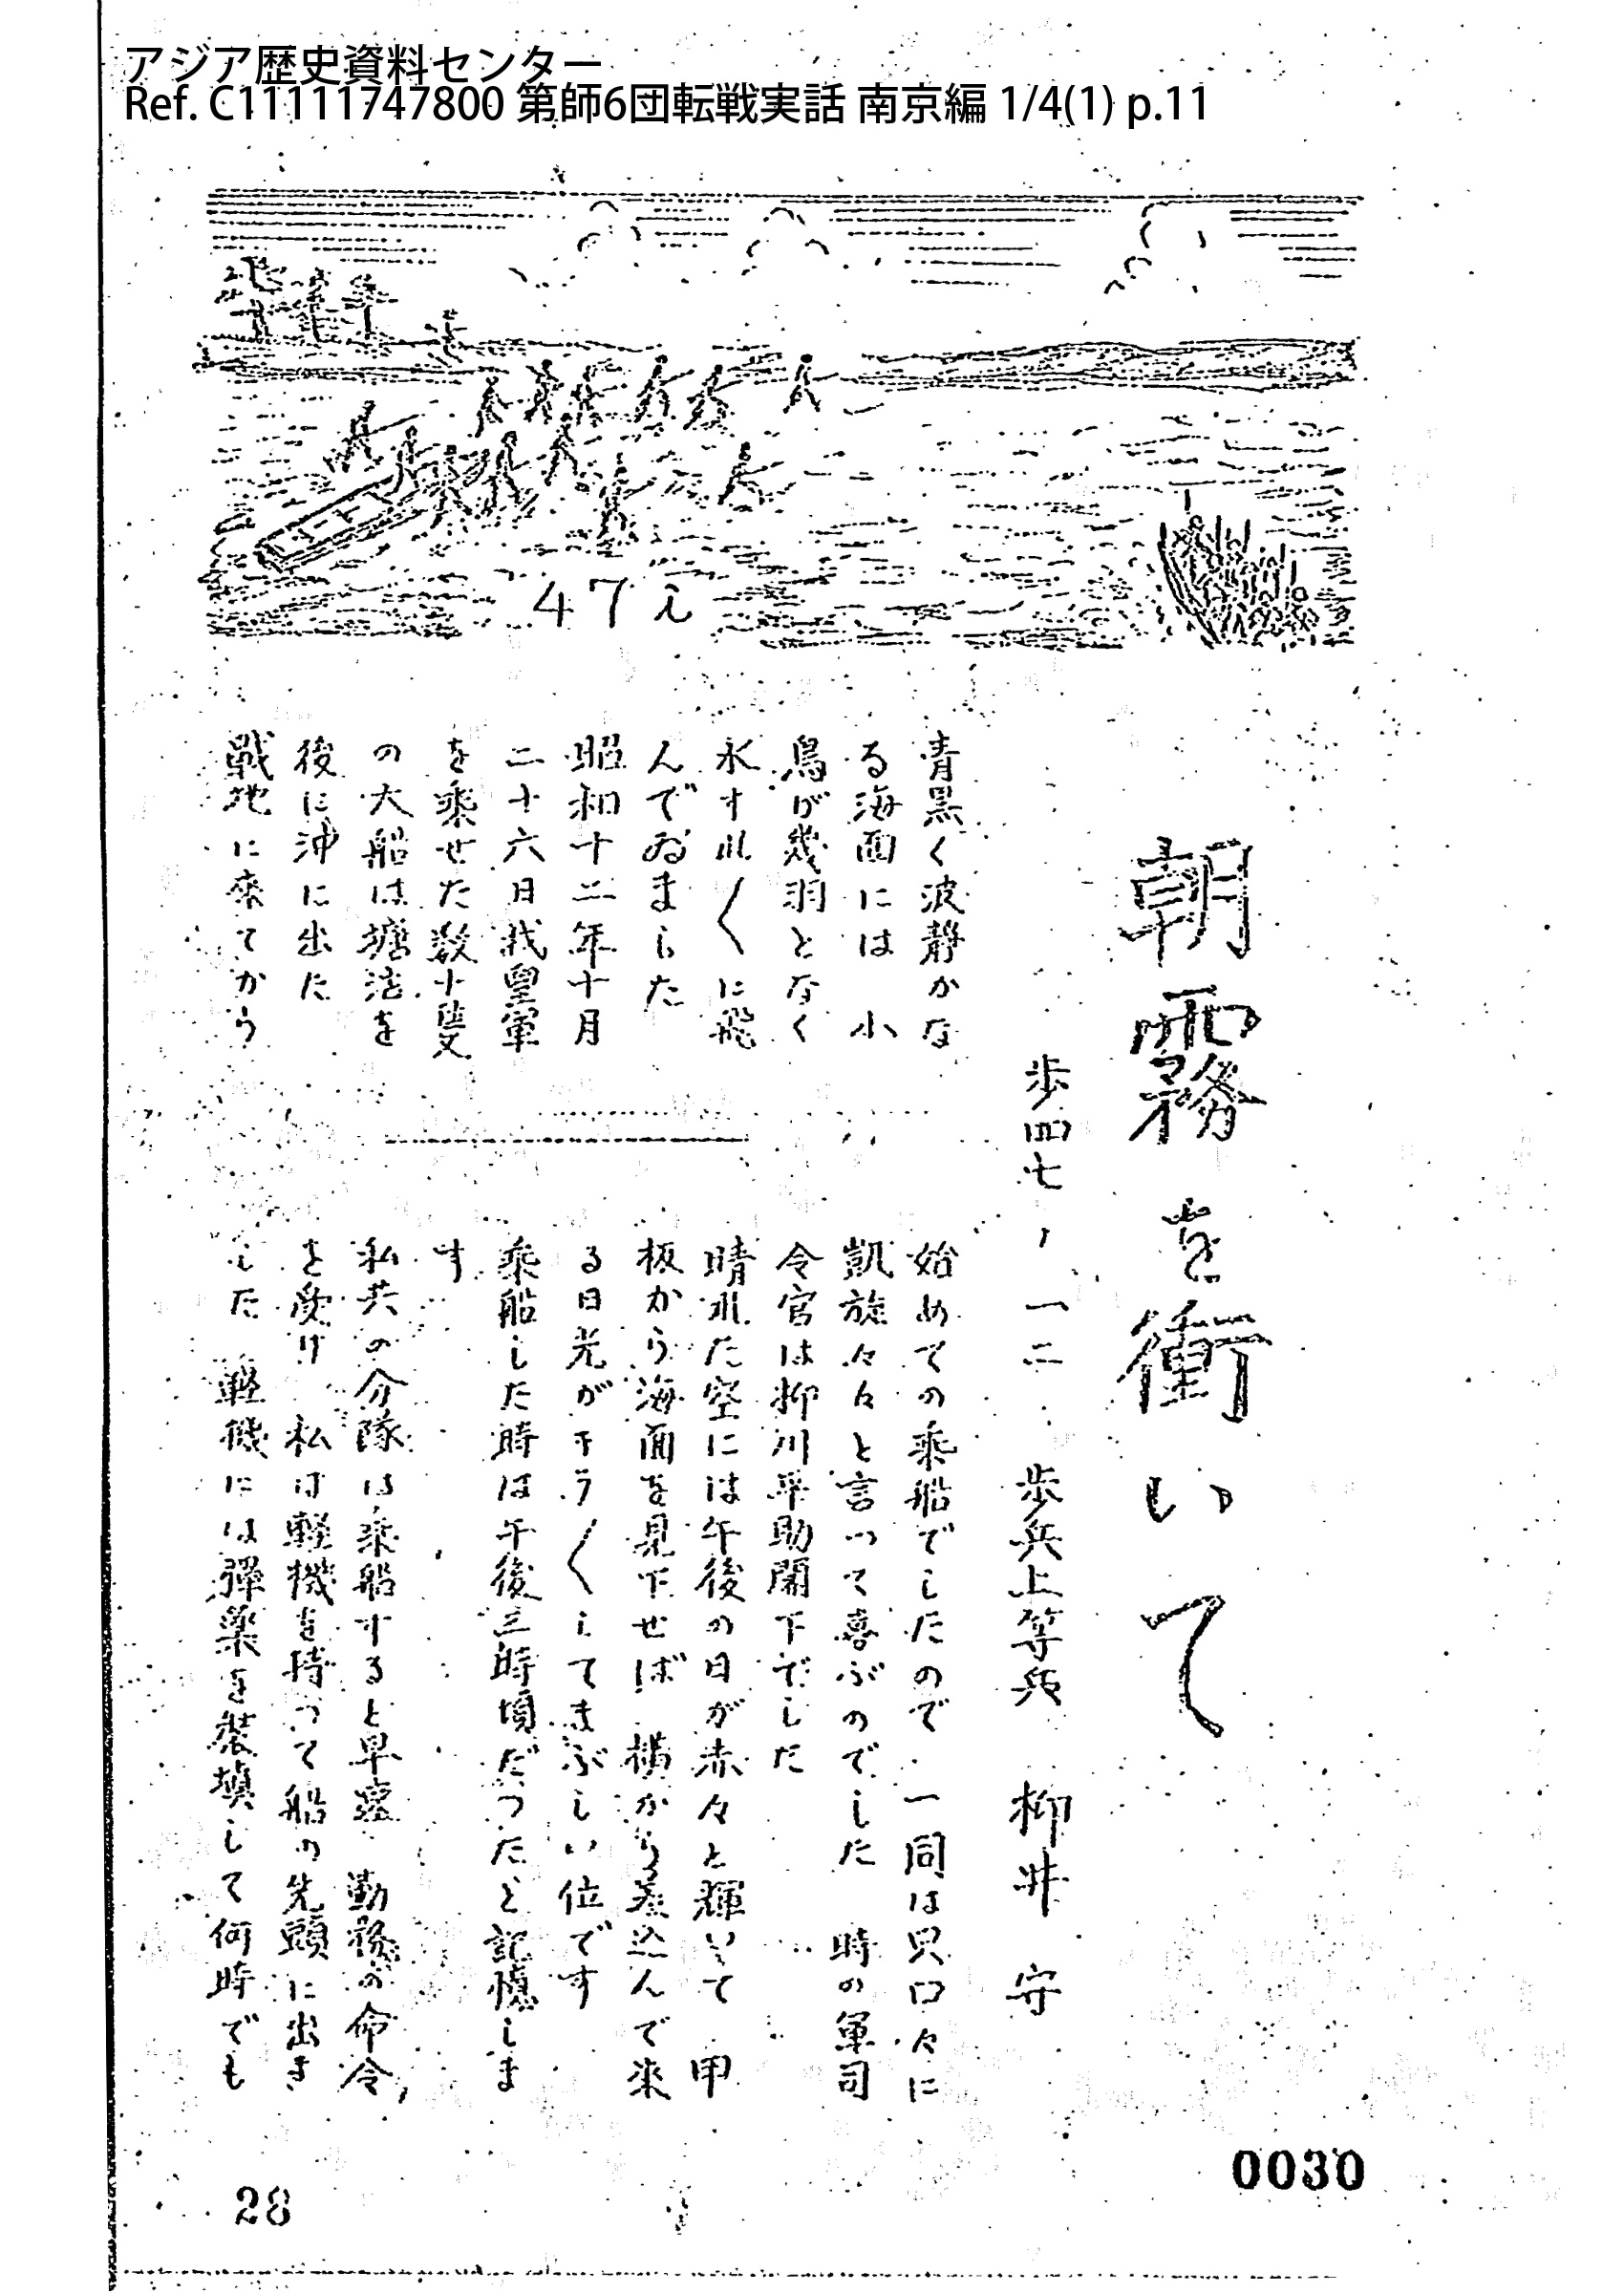 アジア歴史資料センター
Ref. C11111747800 第師6団転戦実話 南京編 1/4(1) p.11
47i
朝霧を衝いて
歩四七、一二 歩兵上等兵 柳井 守
青黒く波静かな
る海面には 小
鳥が幾羽となく
水すれ〱に飛
んでゐました
昭和十二年十月
二十六日我皇軍
を乗せた数十隻
の大船は塘沽を
後に沖に出た
戦地に来てから
始めての乗船でしたので 一同は只口々に
凱旋々々と言って喜ぶのでした 時の軍司
令官は柳川平助閣下でした
晴れた空には午後の日が赤々と輝いて 甲
板から海面を見下せば 横から差込んで来
る日光がキラ〱してまぶしい位です
乗船した時は午後三時頃だったと記憶しま
す
私共の分隊は乗船すると早速 勤務の命令
を受け 私は軽機を持って船の先頭に出ま
した 軽機には弾薬を装填して何時でも
0030
28